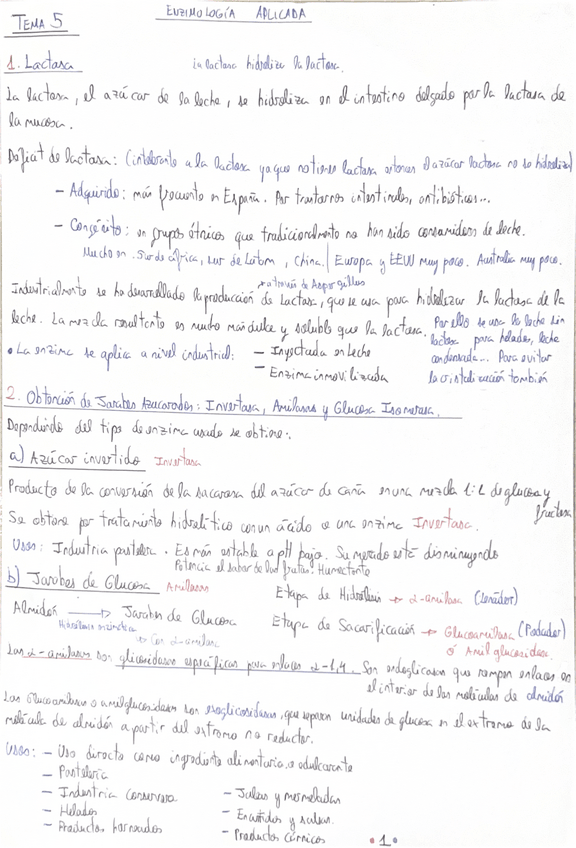 ENZIMOLOGÍA APLICADA
TEMA 5
1. Lactasa
La lactasa hidroliza la lactosa.
La lactosa, el azúcar de la leche, se hidroliza en el intestino delgado por la lactasa de
la mucosa.
Déficit de lactasa: (intolerante a la lactosa ya que no tienes lactasa entonces el azúcar lactosa no se hidroliza)
- Adquirido: más frecuente en España. Por trastornos intestinales, antibióticos...
- Congénito: en grupos étnicos que tradicionalmente no han sido consumidores de leche.
Mucho en Sur de África, sur de Latam, China. | Europa y EEUU muy poco. Australia muy poco.
* a través de Aspergillus
Industrialmente se ha desarrollado la producción de Lactasa, que se usa para hidrolizar la lactosa de la
leche. La mezcla resultante es mucho más dulce y soluble que la lactosa.
Por ello se usa la leche sin
lactosa para helados, leche
condensada... Para evitar
la cristalización también
• La enzima se aplica a nivel industrial: - Inyectada en Leche
- Enzima inmovilizada
2. Obtención de Jarabes Azucarados: Invertasa, Amilasas y Glucosa Isomerasa.
Dependiendo del tipo de enzima usado se obtiene:
a) Azúcar invertido Invertasa
Producto de la conversión de la sacarosa del azúcar de caña en una mezcla 1:1 de glucosa y
fructosa
Se obtiene por tratamiento hidrolítico con un ácido o una enzima Invertasa.
Usos: Industria pastelera. Es más estable a pH bajo. Su mercado está disminuyendo
Potencia el sabor de las frutas. Humectante
b) Jarabes de Glucosa Amilasas
Etapa de Hidrólisis → α-amilasa (Licuador)
Almidón → Jarabes de Glucosa
Hidrólisis enzimática
Con α-amilasa
Etapa de Sacarificación → Glucoamilasa (Podador)
ó Amiloglucosidasa
Las α-amilasas son glicosidasas específicas para enlaces α-1,4. Son endoglicasas que rompen enlaces en
el interior de las moléculas de almidón
Las Glucoamilasas o amiloglucosidasas son exoglicosidasas, que separan unidades de glucosa en el extremo de la
molécula de almidón a partir del extremo no reductor.
Usos: - Uso directo como ingrediente alimentario, o edulcorante
- Pastelería
- Industria conservera
- Helados
- Productos horneados
- Jaleas y mermeladas
- Encurtidos y salsas.
- Productos cárnicos
• 1 •